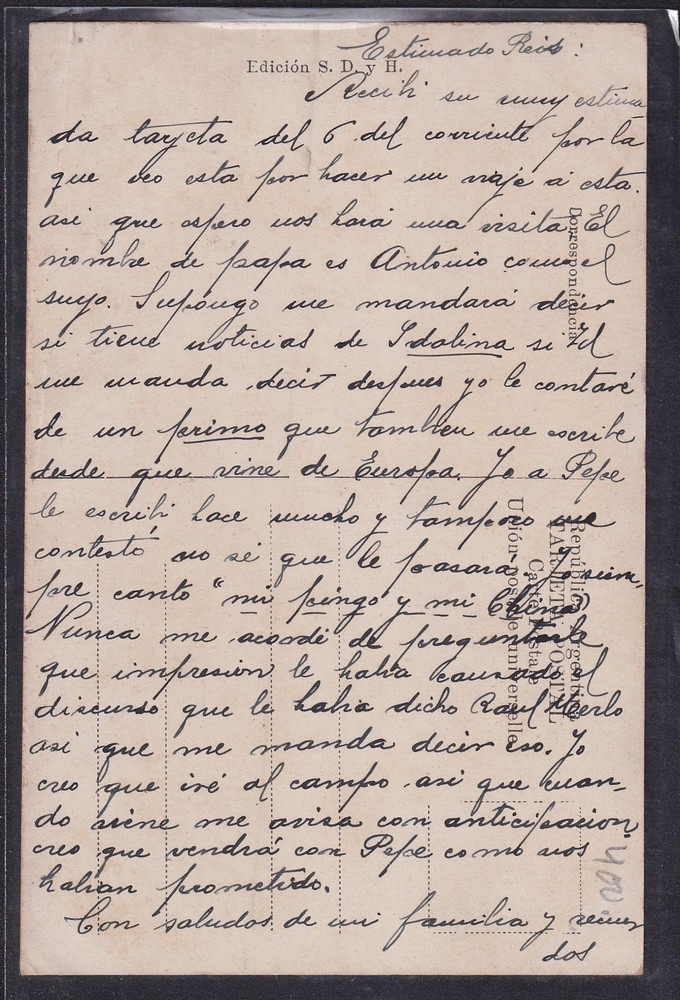 Estimado Reis:
Edición S. D. y H.
Recibi su muy estima
da tarjeta del 6 del corriente por la
que veo esta por hacer un viaje a esta.
asi que espero nos hará una visita. El
nombre de papa es Antonio como el
suyo. Supongo me mandará decir
si tiene noticias de Idalina si Vd
me manda decir despues yo le contaré
de un primo que tambien me escribe
desde que vine de Europa. Yo a Pepe
le escribi hace mucho y tampoco me
contestó no sé que le pasará. Yo siem-
pre canto "mi pingo y mi China"
Nunca me acordé de preguntarle
que impresion le habia causado el
discurso que le habia dicho Raul Merlo
asi que me manda decir eso. Yo
creo que iré al campo asi que cuan-
do viene me avisa con anticipacion,
creo que vendrá con Pepe como nos
habian prometido.
Con saludos de mi familia y recuer
dos
Correspondencia
República Argentina
TARJETA POSTAL
Carte Postale
Unión postale universelle
400.